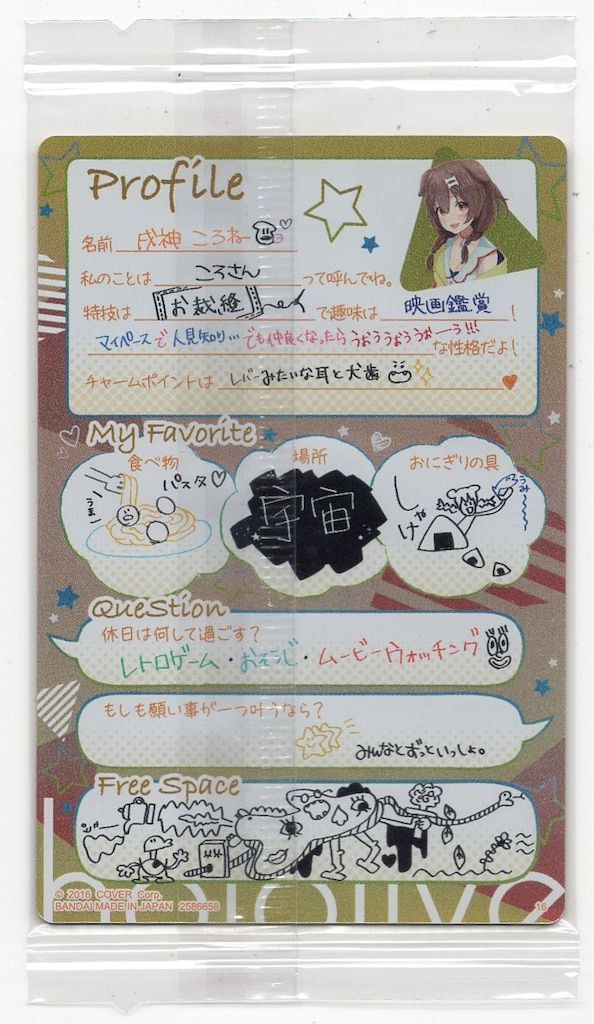 Profile
名前 戌神 ころね
私のことは ころさん って呼んでね。
特技は お裁縫 で趣味は 映画鑑賞 !
マイペースで人見知り… でも仲良くなったら うぉううぉううぉーう!!! な性格だよ!
チャームポイントは レバーみたいな耳と犬歯
My Favorite
食べ物
パスタ♡
うまー
場所
宇宙
おにぎりの具
うみー
QueStion
休日は何して過ごす?
レトロゲーム・おそうじ・ムービーウォッチング
もしも願い事が一つ叶うなら?
みんなとずっといっしょ。
Free Space
hololive
© 2016 COVER Corp.
BANDAI MADE IN JAPAN 2586658
16